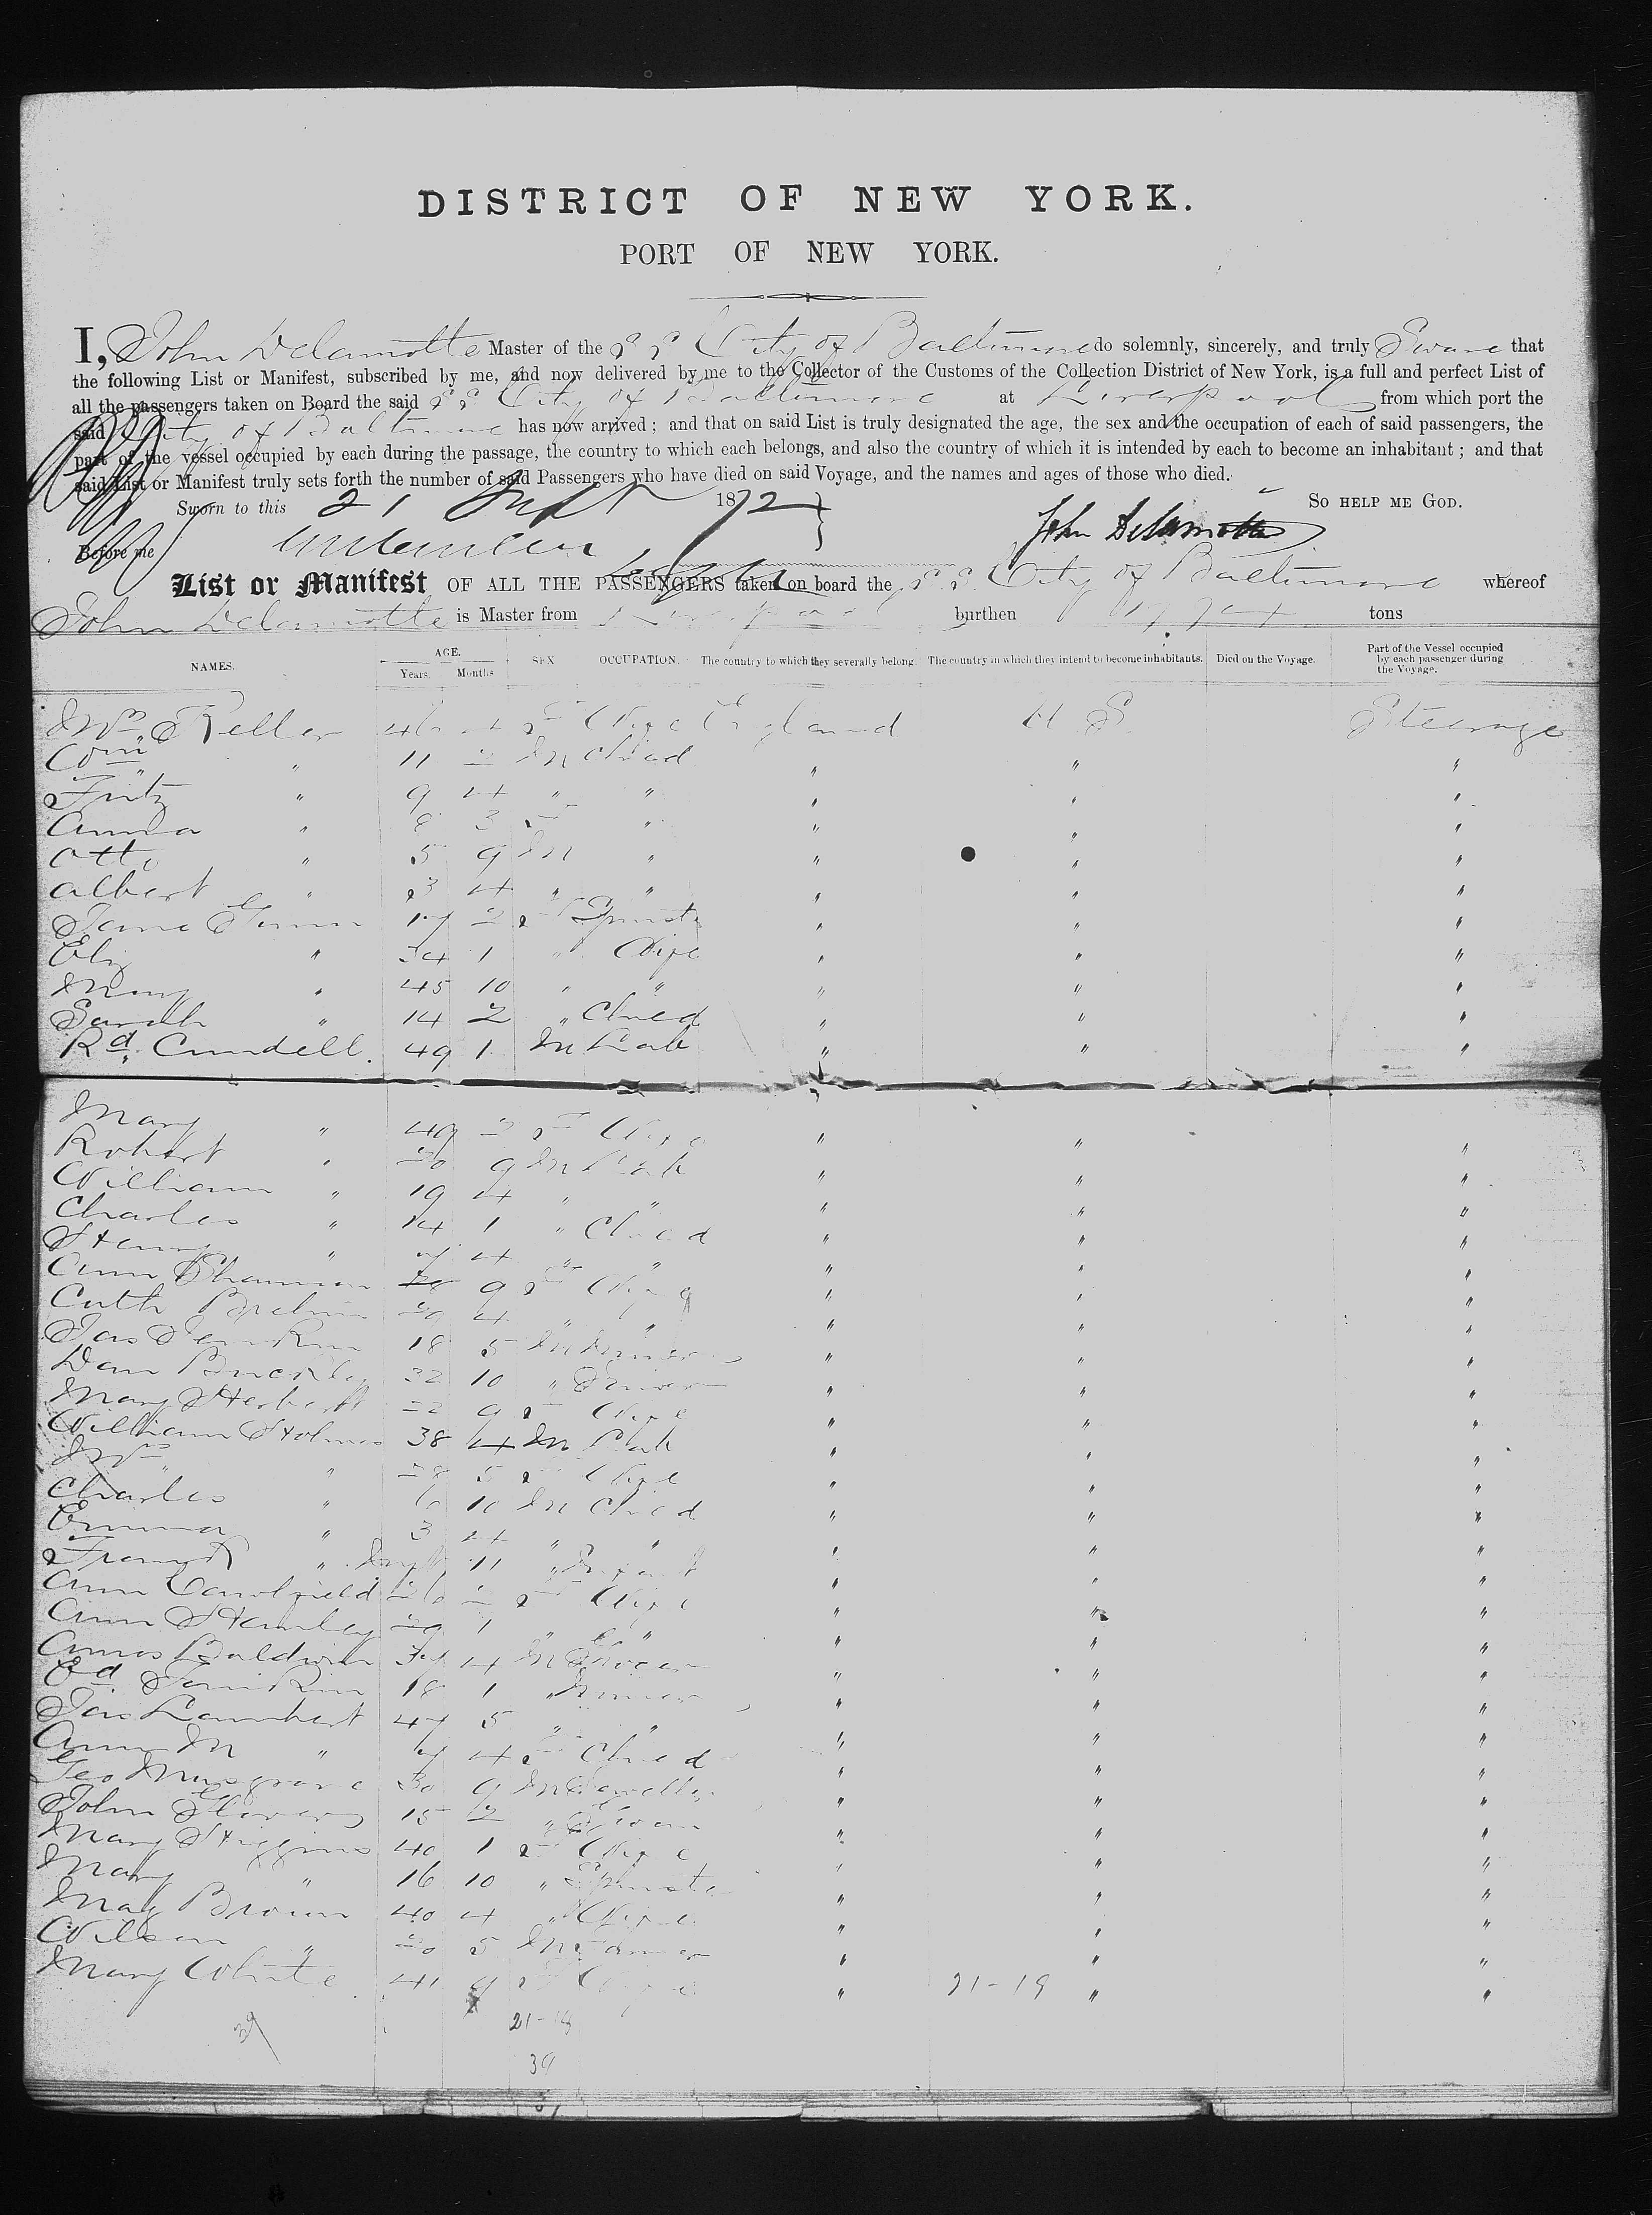 DISTRICT OF NEW YORK.
PORT OF NEW YORK.
I, John Delamotte Master of the S S City of Baltimore do solemnly, sincerely, and truly Swear that
the following List or Manifest, subscribed by me, and now delivered by me to the Collector of the Customs of the Collection District of New York, is a full and perfect List of
all the passengers taken on Board the said S S City of Baltimore at Liverpool from which port the
said City of Baltimore has now arrived ; and that on said List is truly designated the age, the sex and the occupation of each of said passengers, the
part of the vessel occupied by each during the passage, the country to which each belongs, and also the country of which it is intended by each to become an inhabitant ; and that
said List or Manifest truly sets forth the number of said Passengers who have died on said Voyage, and the names and ages of those who died.
Sworn to this 21 1872 SO HELP ME GOD.
John Delamotte
Before me
List or Manifest OF ALL THE PASSENGERS taken on board the S S City of Baltimore whereof
John Delamotte is Master from Liverpool burthen tons
NAMES. AGE. Years. Months SEX OCCUPATION. The country to which they severally belong. The country in which they intend to become inhabitants. Died on the Voyage. Part of the Vessel occupied by each passenger during the Voyage.
Mrs Keller 46 4 F Wife England U S Steerage
" 11 2 M Child " " "
Fritz " 9 4 " " " " "
Anna " 8 3 F " " " "
Otto " 5 9 M " " " "
Albert " 3 4 " " " " "
Jane 17 2 F Spinst " " "
Eliz " 34 1 " Wife " " "
Mary " 45 10 " " " " "
Sarah " 14 2 " Child " " "
Rd. Cundell 49 1 M Lab " " "
Mary " 49 2 F Wife " " "
Robert " 20 9 M Lab " " "
William " 19 4 " " " " "
Charles " 14 1 " Child " " "
Henry " 7 4 " " " " "
Ann 9 F Wife " " "
Cath 4 " " " " "
Jas Jenkin 18 5 M Miner " " "
Dan Buckley 32 10 " " " "
Mary Herbert 22 9 F Wife " " "
William Holmes 38 4 M Lab " " "
Mrs " 28 5 F Wife " " "
Charles " 6 10 M Child " " "
Emma " 3 4 " " " " "
Frank " 11 " Infant " " "
Ann 26 2 F Wife " " "
Ann Hanley 29 1 " " " " "
Amos Baldwin 37 4 M Grocer " " "
Ed Jenkin 18 1 " Miner " " "
Jas Lambert 47 5 " " " " "
Ann M " 4 F Child " " "
Geo Musgrave 30 9 M Jeweller " " "
John 15 2 " Groom " " "
Mary Higgins 40 1 F Wife " " "
Mary " 16 10 " Spinster " " "
May Brown 40 4 " Wife " " "
Wilson " 20 5 M Farmer " " "
Mary White 41 9 F Wife " 21-19 " "
39 21-18
39